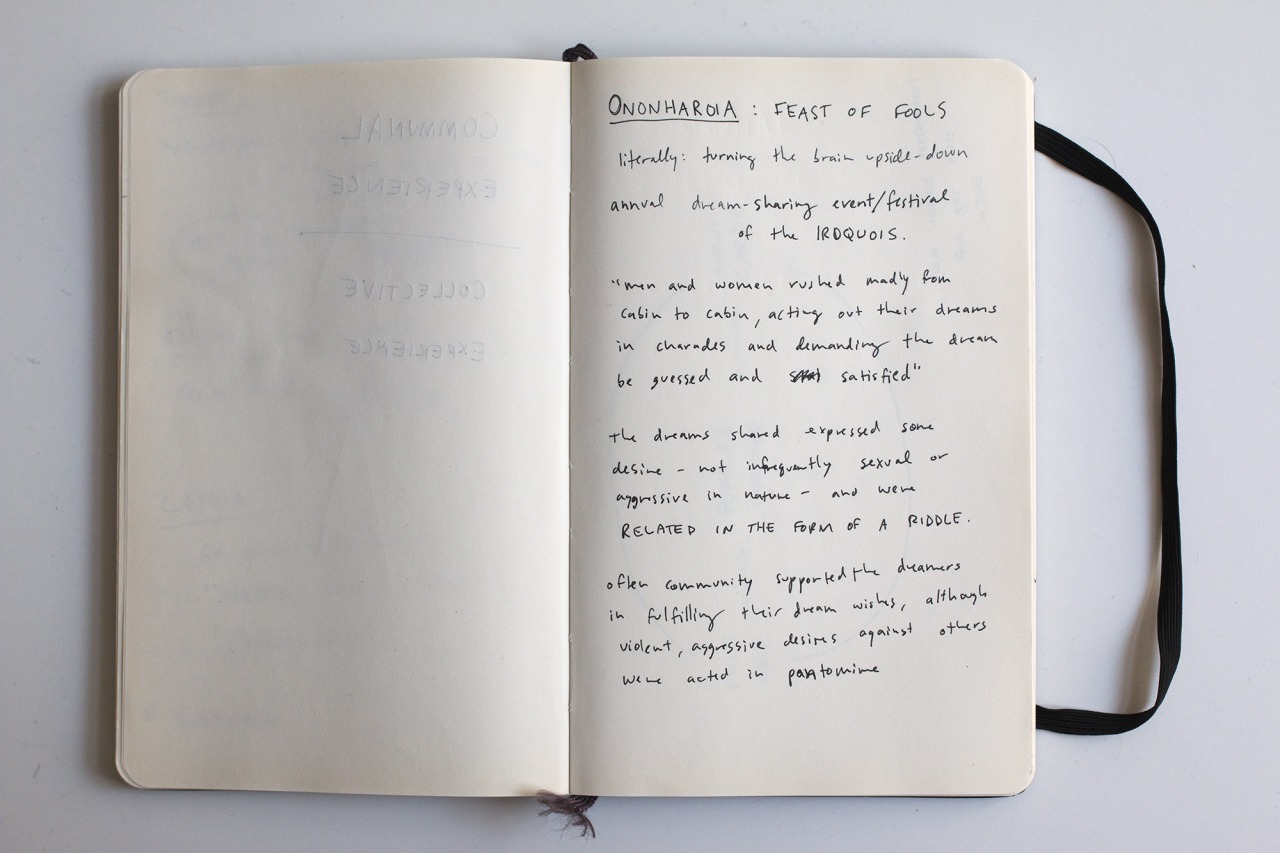 COMMUNAL
EXPERIENCE
COLLECTIVE
EXPERIENCE
ONONHAROIA : FEAST OF FOOLS
literally: turning the brain upside-down
annual dream-sharing event/festival
of the IROQUOIS.
"men and women rushed madly from
cabin to cabin, acting out their dreams
in charades and demanding the dream
be guessed and satisfied"
the dreams shared expressed some
desire - not infrequently sexual or
aggressive in nature - and were
RELATED IN THE FORM OF A RIDDLE.
often community supported the dreamers
in fulfilling their dream wishes, although
violent, aggressive desires against others
were acted in pantomime